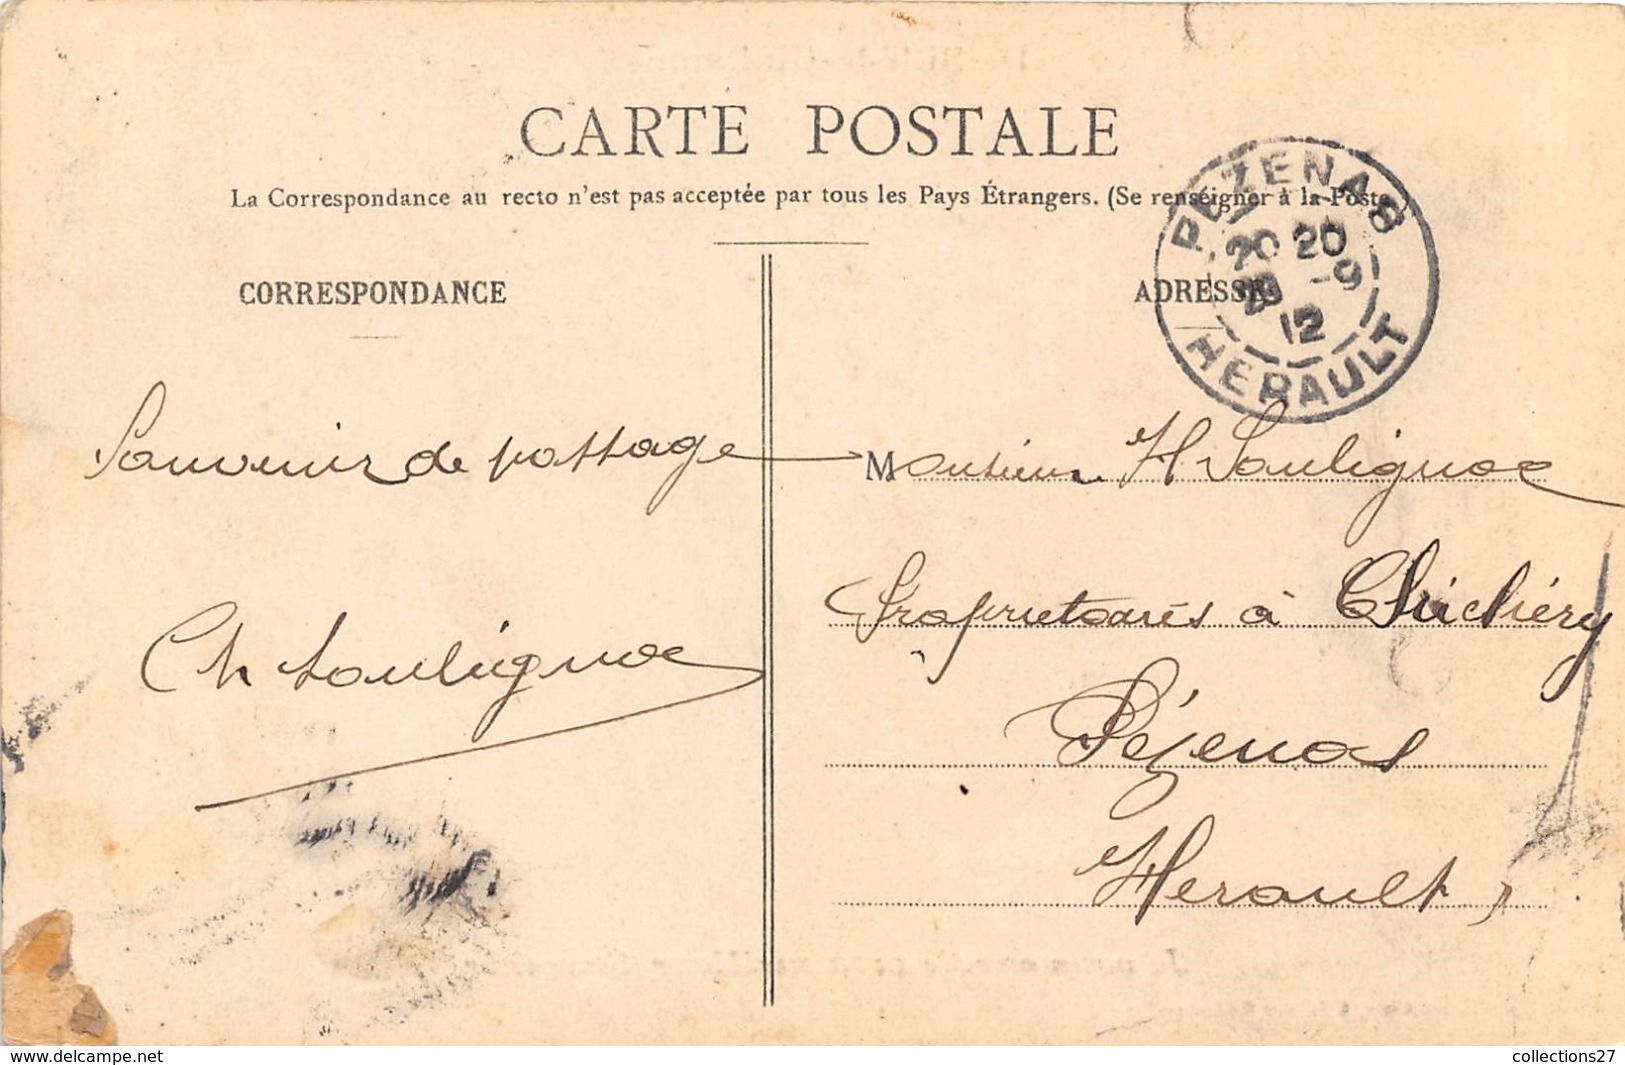 CARTE POSTALE
La Correspondance au recto n'est pas acceptée par tous les Pays Étrangers. (Se renseigner à la Poste.)
CORRESPONDANCE
ADRESSE
PEZENAS
20 20
-9
12
HERAULT
Souvenir de passage
Ch Soulignac
Monsieur H Soulignac
Propriétaires à
Pézenas
Herault
www.delcampe.net
collections27